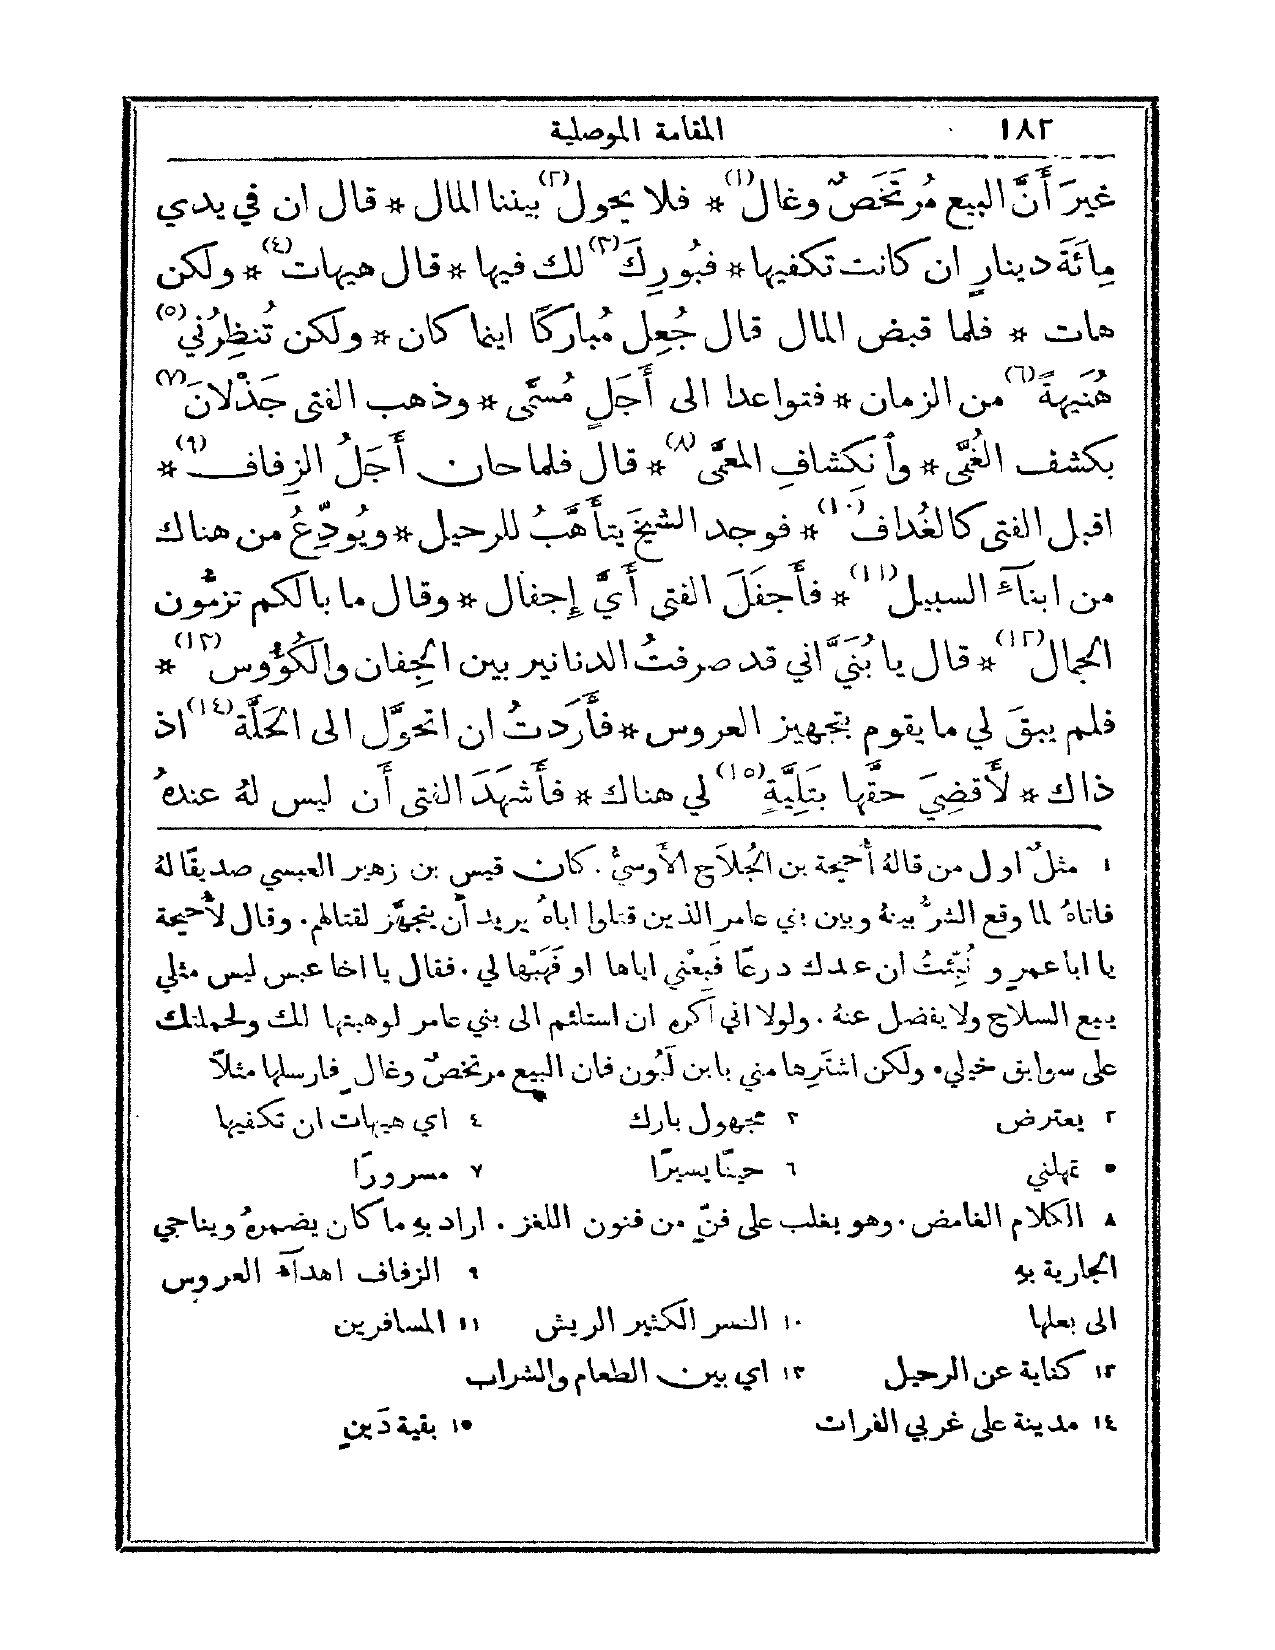 ١٨٢ المقامة الموصلية
غيرَ أَنَّ البيع مُرتَخَصٌ وغال(١) * فلا يحول(٢) بيننا المال * قال ان في يدي
مِائَةَ دينارٍ ان كانت تكفيها * فبُورِكَ(٣) لك فيها * قال هيهات(٤) * ولكن
هات * فلما قبض المال قال جُعِل مُباركًا اينما كان * ولكن تُنظِرُني(٥)
هُنَيهةً(٦) من الزمان * فتواعدا الى أَجَلٍ مُسمَّى * وذهب الفتى جَذْلانَ(٧)
بكشف الغُمَّى * وأنكِشافِ المعمَّى(٨) * قال فلما حان أَجَلُ الزِفاف(٩) *
اقبل الفتى كالغُداف(١٠) * فوجد الشيخ يتأَهَّبُ للرحيل * ويُودِّعُ من هناك
من ابنآء السبيل(١١) * فأَجفَلَ الفتى أَيَّ إِجفال * وقال ما بالكم تزمُّون
الجمال(١٢) * قال يا بُنَيَّ اني قد صرفتُ الدنانير بين الجِفان والكُؤُوس(١٣) *
فلم يبقَ لي ما يقوم بتجهيز العروس * فأَرَدتُ ان اتحوَّل الى الحَلَّة(١٤) اذ
ذاك * لأَقضِيَ حقَّها بتَلِيَّةٍ(١٥) لي هناك * فأَشهَدَ الفتى أَن ليس لهُ عندهُ
١ مثلٌ اول من قالهُ أُحيحة بن الجُلَاح الأَوسيُّ. كان قيس بن زهير العبسي صديقًا لهُ
فاتاهُ لما وقع الشرُّ بينهُ وبين بني عامر الذين قتلوا اباهُ يريد أَن يتجهَّز لقتالهم. وقال لأُحيحة
يا ابا عمرٍو نُبِّئتُ ان عندك درعًا فَبِعْني اياها او فَهَبْها لي. فقال يا اخا عبس ليس مثلي
يبيع السلاح ولا يفضل عنهُ. ولولا اني اكره ان استلئم الى بني عامر لوهبتها لك ولحملتك
على سوابق خيلي. ولكن اشتَرِها مني بابن لَبُون فان البيع مرتخصٌ وغالٍ فارسلها مثلاً
٢ يعترض ٣ مجهول بارك ٤ اي هيهات ان تكفيها
٥ تمهلني ٦ حينًا يسيرًا ٧ مسرورًا
٨ الكلام الغامض. وهو يغلب على فنٍّ من فنون اللغز. اراد بهِ ما كان يضمرهُ ويناجي
الجارية بهِ ٩ الزفاف اهدآء العروس
الى بعلها ١٠ النسر الكثير الريش ١١ المسافرين
١٢ كناية عن الرحيل ١٣ اي بين الطعام والشراب
١٤ مدينة على غربي الفرات ١٥ بقية دَينٍ